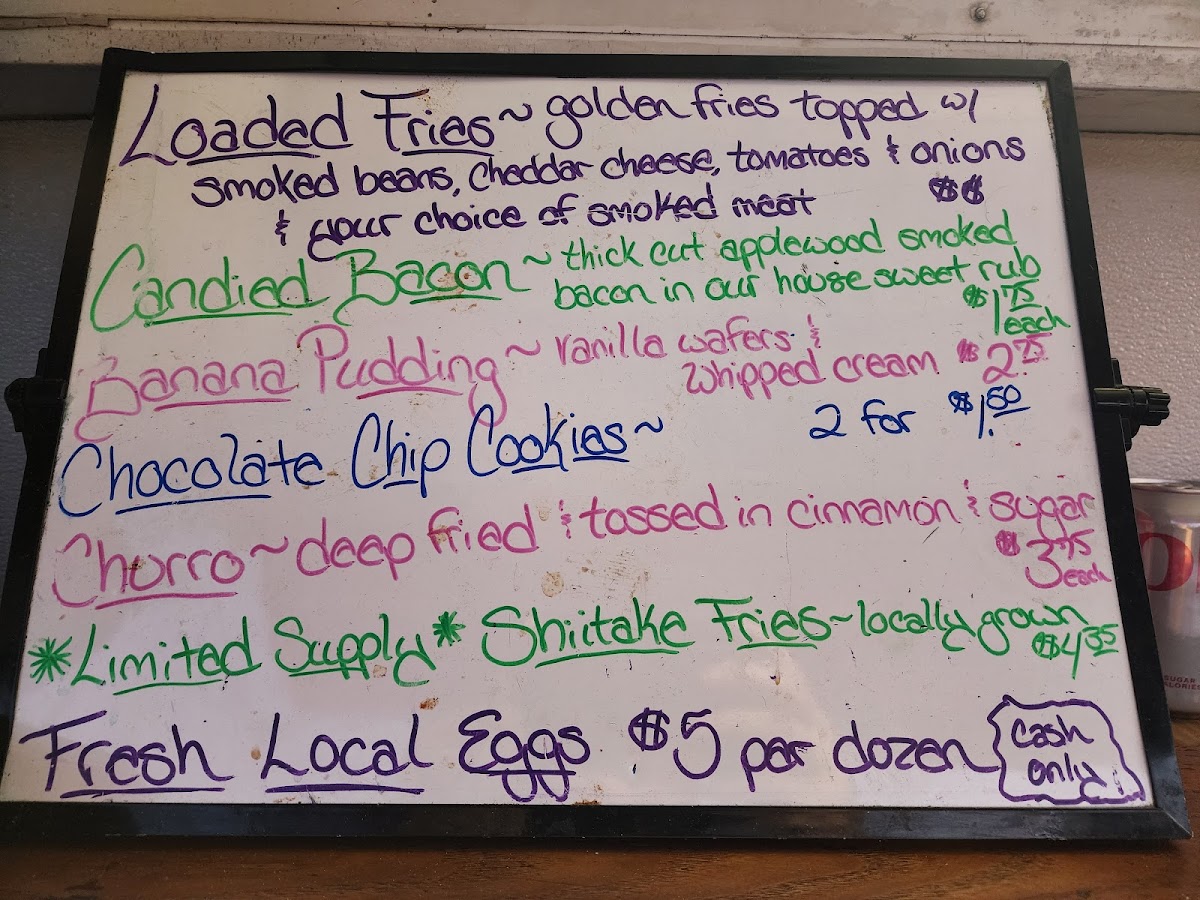 Loaded Fries ~ golden fries topped w/
smoked beans, cheddar cheese, tomatoes & onions
& your choice of smoked meat $6
Candied Bacon ~ thick cut applewood smoked
bacon in our house sweet rub
$1.75
each
Banana Pudding ~ vanilla wafers &
whipped cream $2.75
Chocolate Chip Cookies ~ 2 for $1.50
Churro ~ deep fried & tossed in cinnamon & sugar
$3.75
each
*Limited Supply* Shiitake Fries ~ locally grown
$4.35
Fresh Local Eggs $5 per dozen
Cash
only
SUGAR
CALORIES